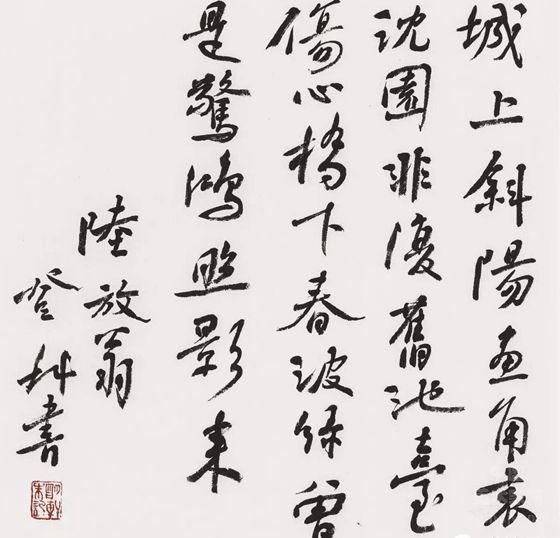 城上斜陽画角哀
沈園非復舊池臺
傷心橋下春波綠曾
是驚鴻照影来
陸放翁
登科書